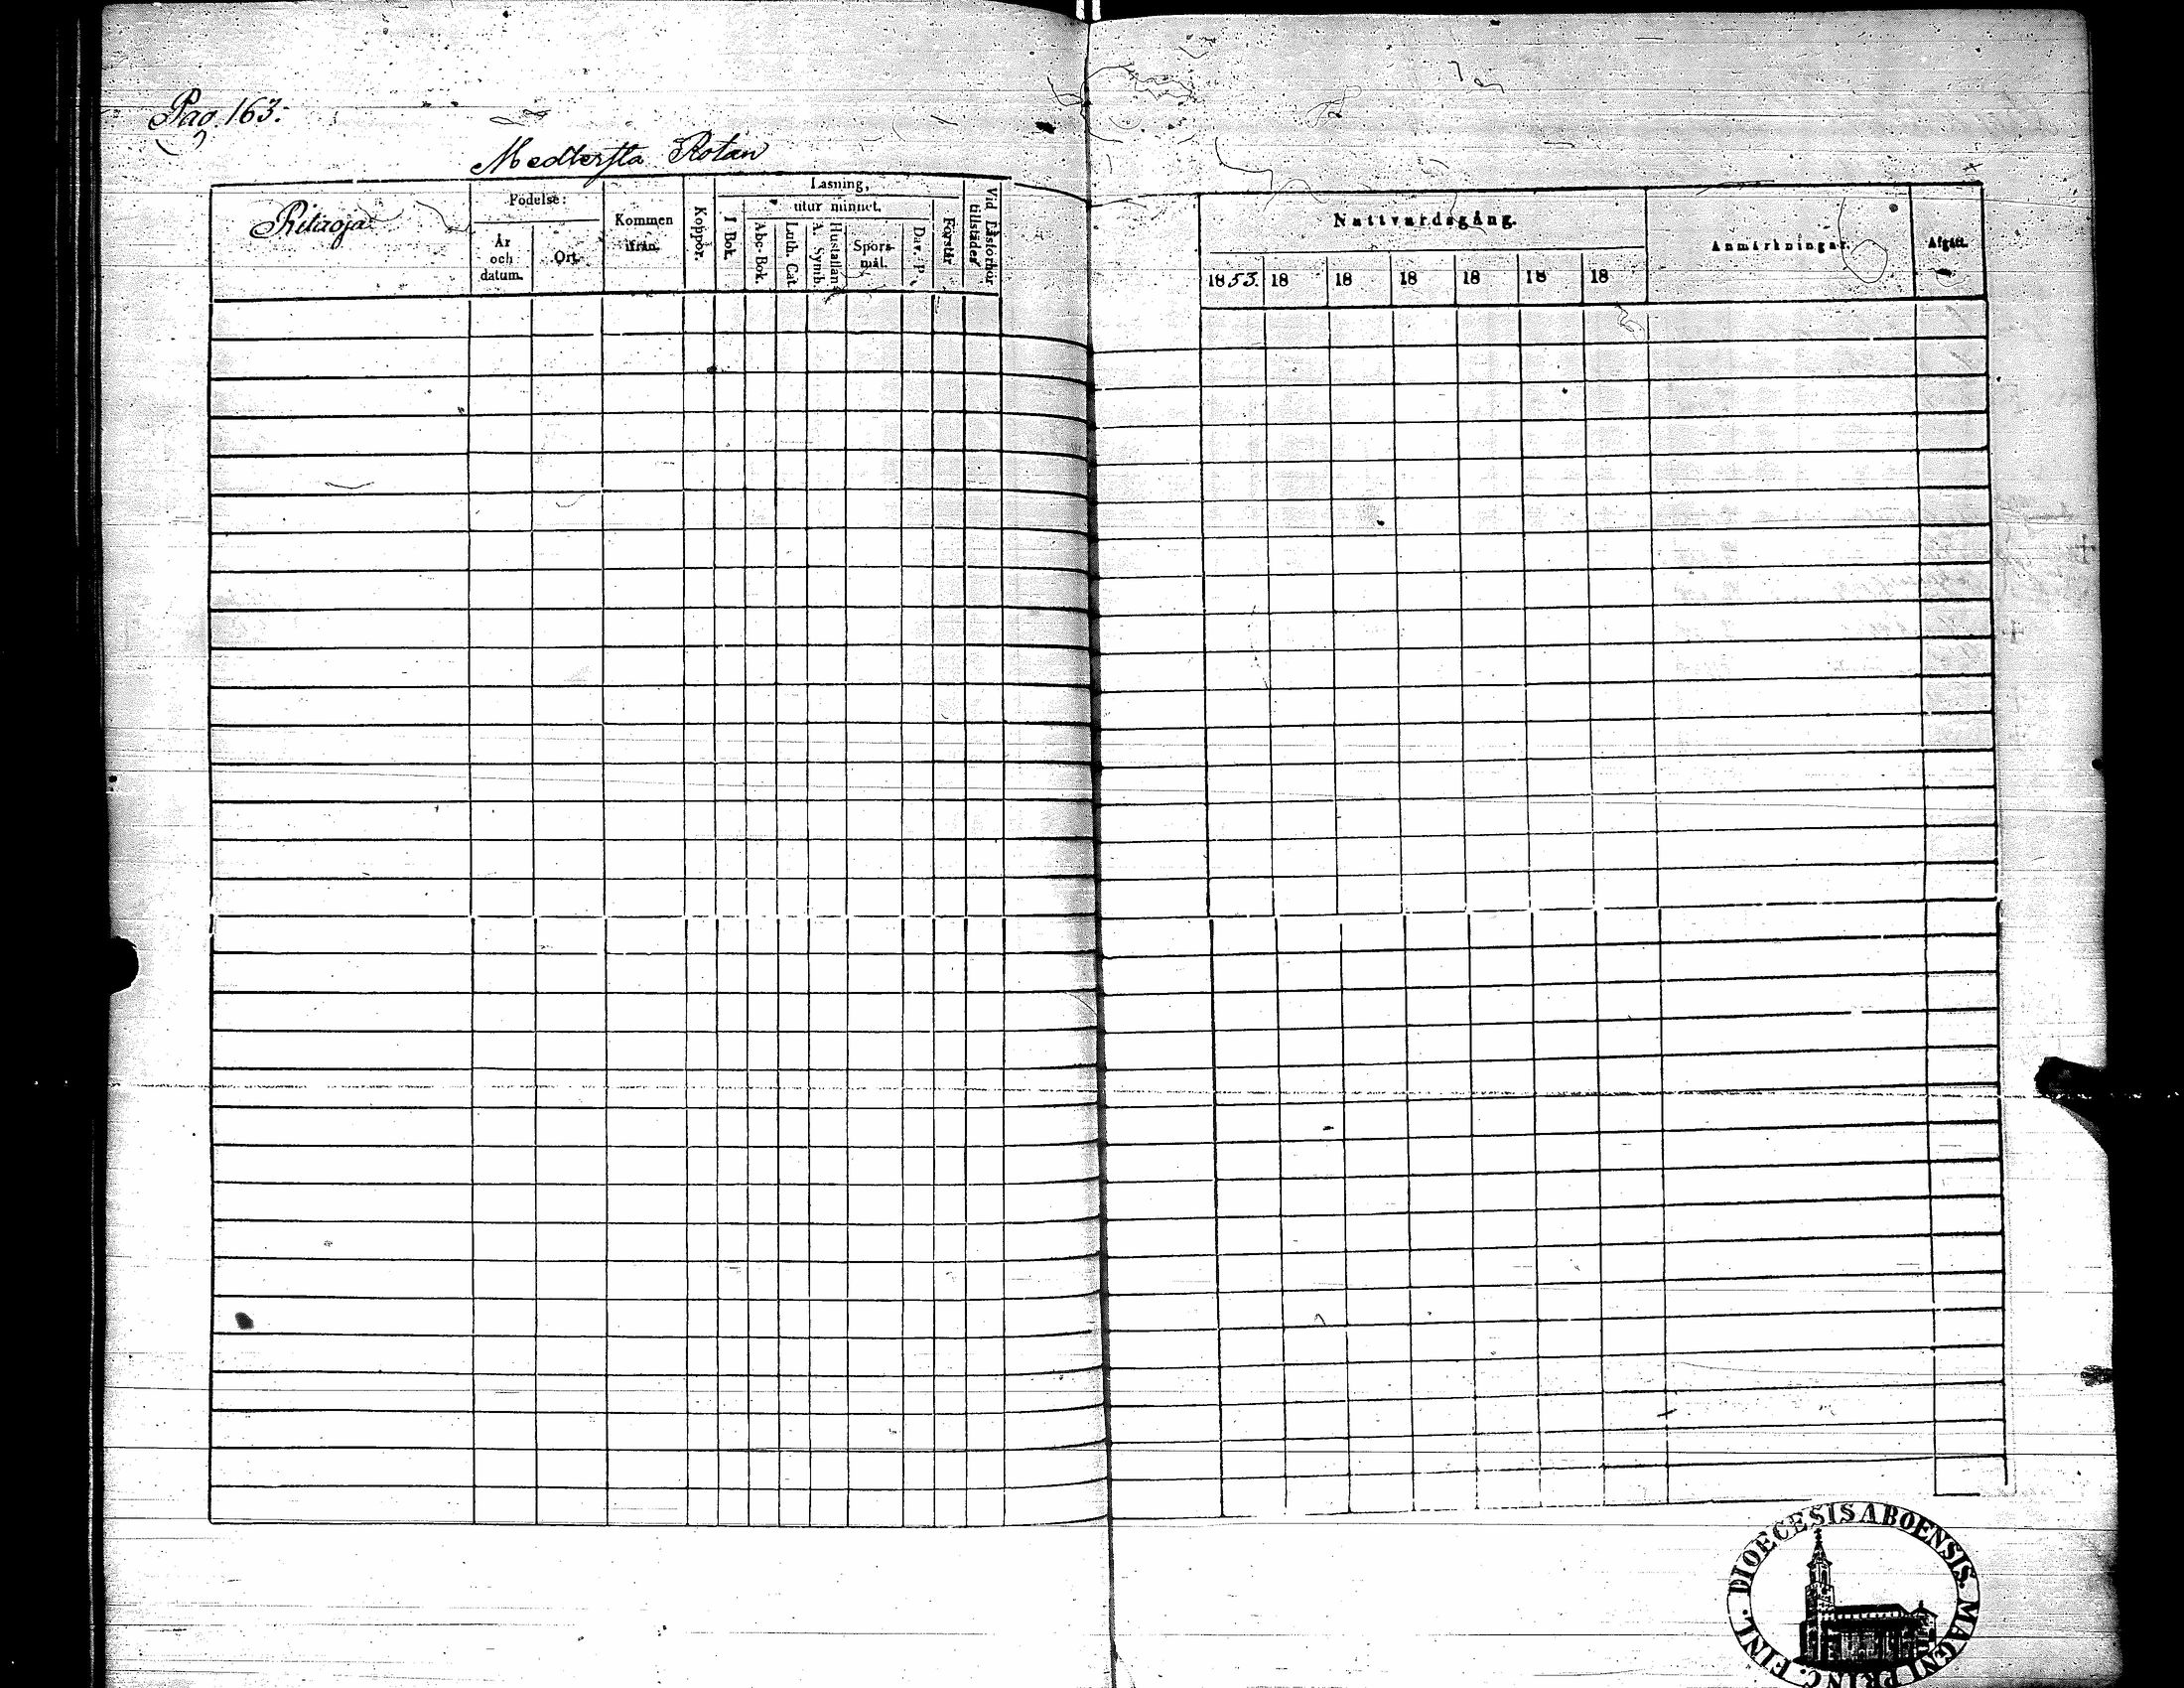 Pag. 163.
Medlersta Rotan
Ritaoja
Födelse:
År och datum.
Ort.
Kommen ifrån.
Koppor.
Läsning,
utur minnet.
I Bok.
Abc-Bok.
Luth. Cat.
Hustaflan
A. Symb.
Spörs-
mål.
Dav. P.
Förstår
Vid Läsförhör
tillstädes
Nattvardsgång.
1853. 18 18 18 18 18 18
Anmärkningar.
Afgått.
DIOECESIS ABOENSIS. MAGNI PRINC. FINL.